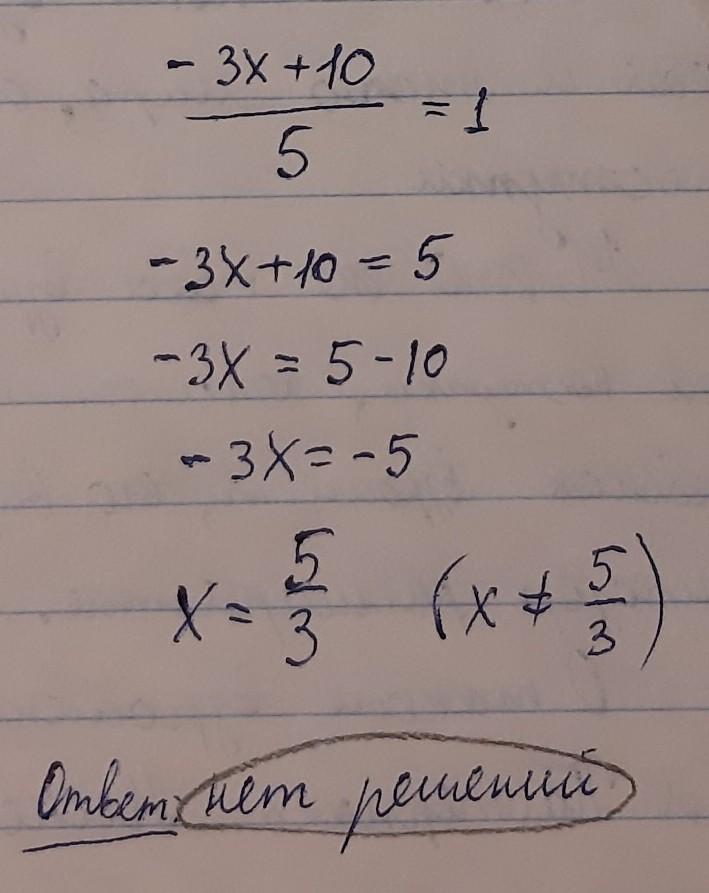 -3x+10
5
= 1
-3x+10 = 5
-3x = 5-10
-3x = -5
x = 5/3 (x ≠ 5/3)
Ответ: нет решений